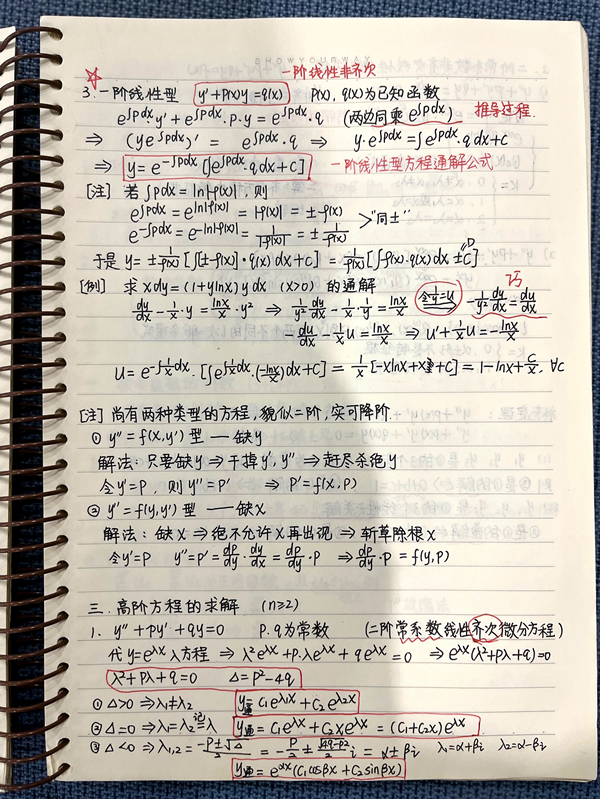 一阶线性非齐次
☆
3.一阶线性型 y'+p(x)y=q(x) p(x), q(x)为已知函数
e^{∫pdx}·y'+e^{∫pdx}·p·y=e^{∫pdx}·q (两边同乘 e^{∫pdx}) 推导过程
⇒ (ye^{∫pdx})' = e^{∫pdx}·q ⇒ y·e^{∫pdx}=∫e^{∫pdx}·q dx+C
⇒ y=e^{-∫pdx}[∫e^{∫pdx}·q dx+C] 一阶线性型方程通解公式
[注] 若∫pdx=ln|φ(x)|, 则
e^{∫pdx}=e^{ln|φ(x)|}=|φ(x)|=±φ(x)
>"同±"
e^{-∫pdx}=e^{-ln|φ(x)|}=1/|φ(x)|=±1/φ(x)
于是 y=±1/φ(x)[∫[±φ(x)]·q(x)dx+C]=1/φ(x)[∫φ(x)·q(x)dx±C] "D"
[例] 求 xdy=(1+ylnx)ydx (x>0) 的通解 巧
dy/dx-1/x·y=lnx/x·y² ⇒ 1/y² dy/dx-1/x·1/y=lnx/x (令1/y=u) -1/y² dy/dx=du/dx
-du/dx-1/x u=lnx/x ⇒ u'+1/x u=-lnx/x
u=e^{-∫1/x dx}·[∫e^{∫1/x dx}·(-lnx/x)dx+C]=1/x[-xlnx+x+C]=1-lnx+C/x, ∀C
[注] 尚有两种类型的方程,貌似二阶,实可降阶
① y''=f(x,y')型 — 缺y
解法:只要缺y⇒干掉y', y''⇒赶尽杀绝y
令y'=P, 则y''=P' ⇒ P'=f(x,P)
② y'=f(y,y')型 — 缺x
解法:缺x⇒绝不允许x再出现⇒斩草除根x
令y'=P y''=P'=dp/dy·dy/dx=dp/dy·P ⇒dp/dy·P=f(y,P)
三.高阶方程的求解 (n≥2)
1. y''+py'+qy=0 P.q为常数 (二阶常系数线性齐次微分方程)
代y=e^{λx}入方程 ⇒ λ²e^{λx}+P·λe^{λx}+qe^{λx}=0 ⇒e^{λx}(λ²+Pλ+q)=0
λ²+Pλ+q=0 Δ=P²-4q
① Δ>0 ⇒λ₁≠λ₂ y通=C₁e^{λ₁x}+C₂e^{λ₂x}
② Δ=0 ⇒λ₁=λ₂记=λ y通=C₁e^{λx}+C₂xe^{λx}=(C₁+C₂x)e^{λx}
③ Δ<0 ⇒λ₁,₂=(-P±√Δ)/2=-P/2±√(4q-P²)/2 i=α±βi λ₁=α+βi λ₂=α-βi
y通=e^{αx}(C₁cosβx+C₂sinβx)